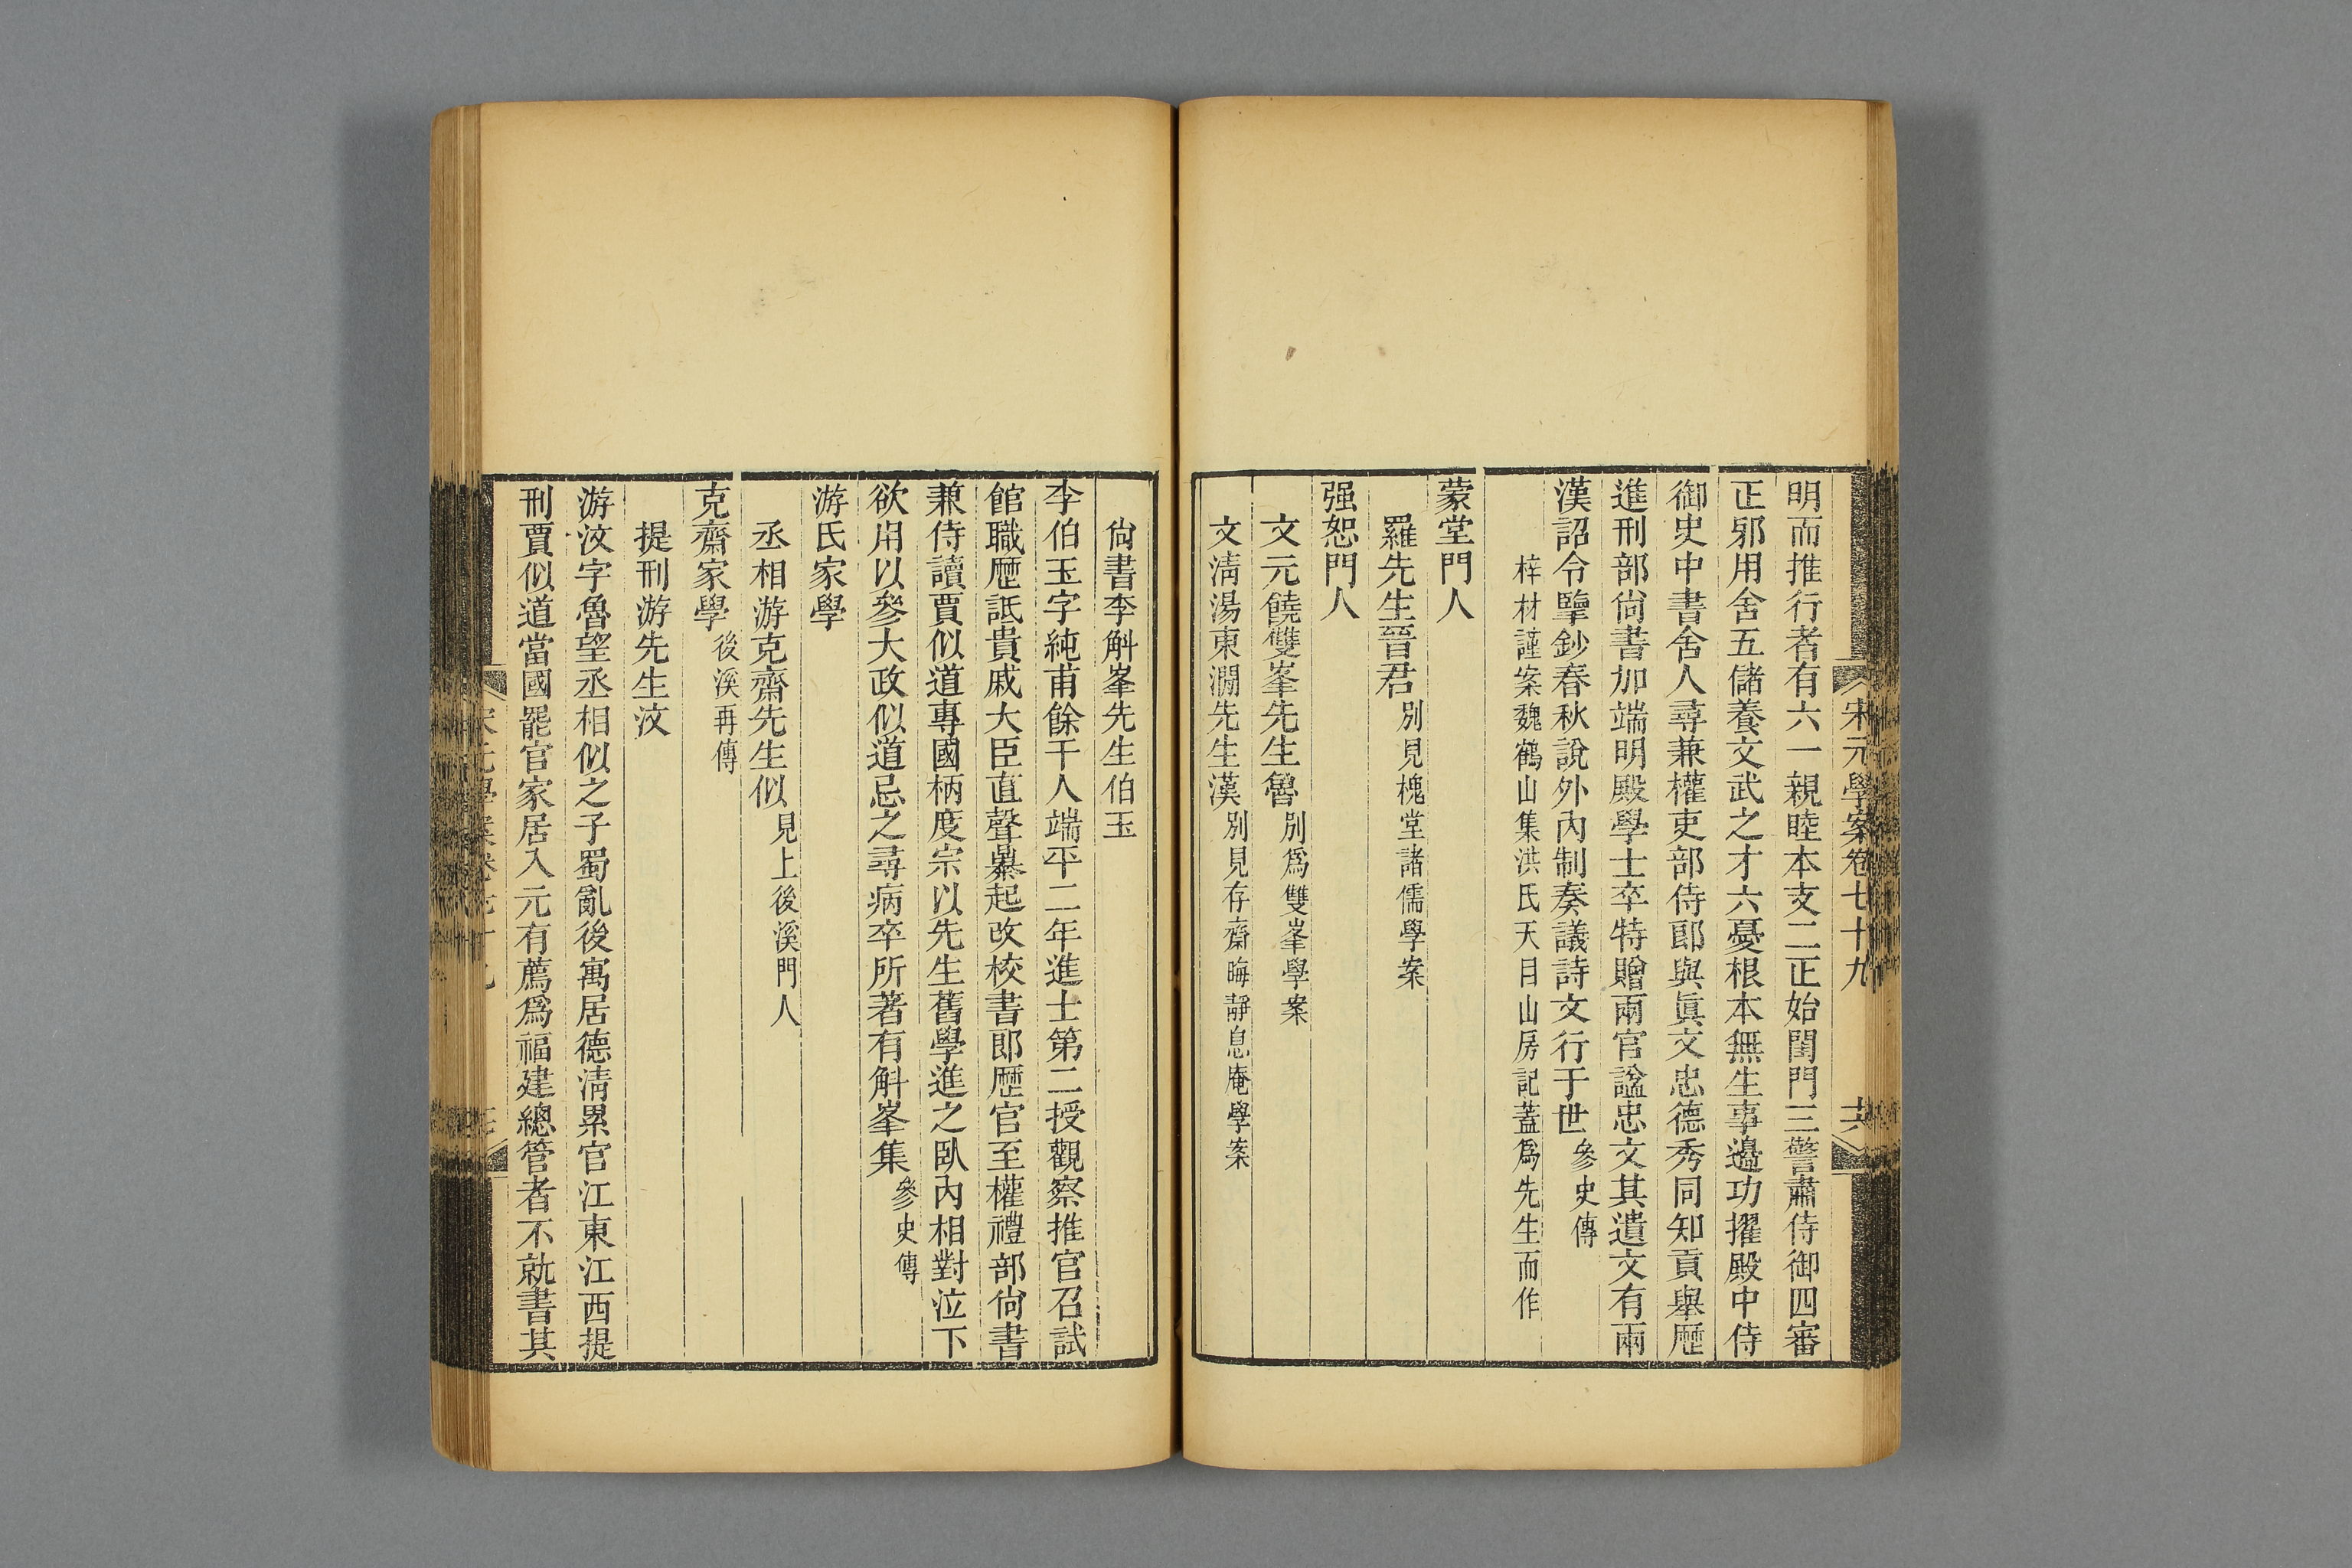 宋元學案卷七十九
明而推行者有六一親睦本支二正始閨門三警肅侍御四審
正邪用舍五儲養文武之才六憂根本無生事邉功擢殿中侍
御史中書舍人尋兼權吏部侍郎與眞文忠德秀同知貢舉歷
進刑部尙書加端明殿學士卒特贈兩官諡忠文其遺文有兩
漢詔令擥鈔春秋說外內制奏議詩文行于世參史傳
梓材謹案魏鶴山集洪氏天目山房記蓋爲先生而作
蒙堂門人
羅先生晉君別見槐堂諸儒學案
强恕門人
文元饒雙峯先生魯別爲雙峯學案
文淸湯東澗先生漢別見存齋晦靜息庵學案
尙書李斛峯先生伯玉
李伯玉字純甫餘干人端平二年進士第二授觀察推官召試
館職歷詆貴戚大臣直聲㬥起改校書郎歷官至權禮部尙書
兼侍讀賈似道專國柄度宗以先生舊學進之臥內相對泣下
欲用以參大政似道忌之尋病卒所著有斛峯集參史傳
游氏家學
丞相游克齋先生似見上後溪門人
克齋家學後溪再傳
提刑游先生汶
游汶字魯望丞相似之子蜀亂後寓居德淸累官江東江西提
刑賈似道當國罷官家居入元有薦爲福建總管者不就書其